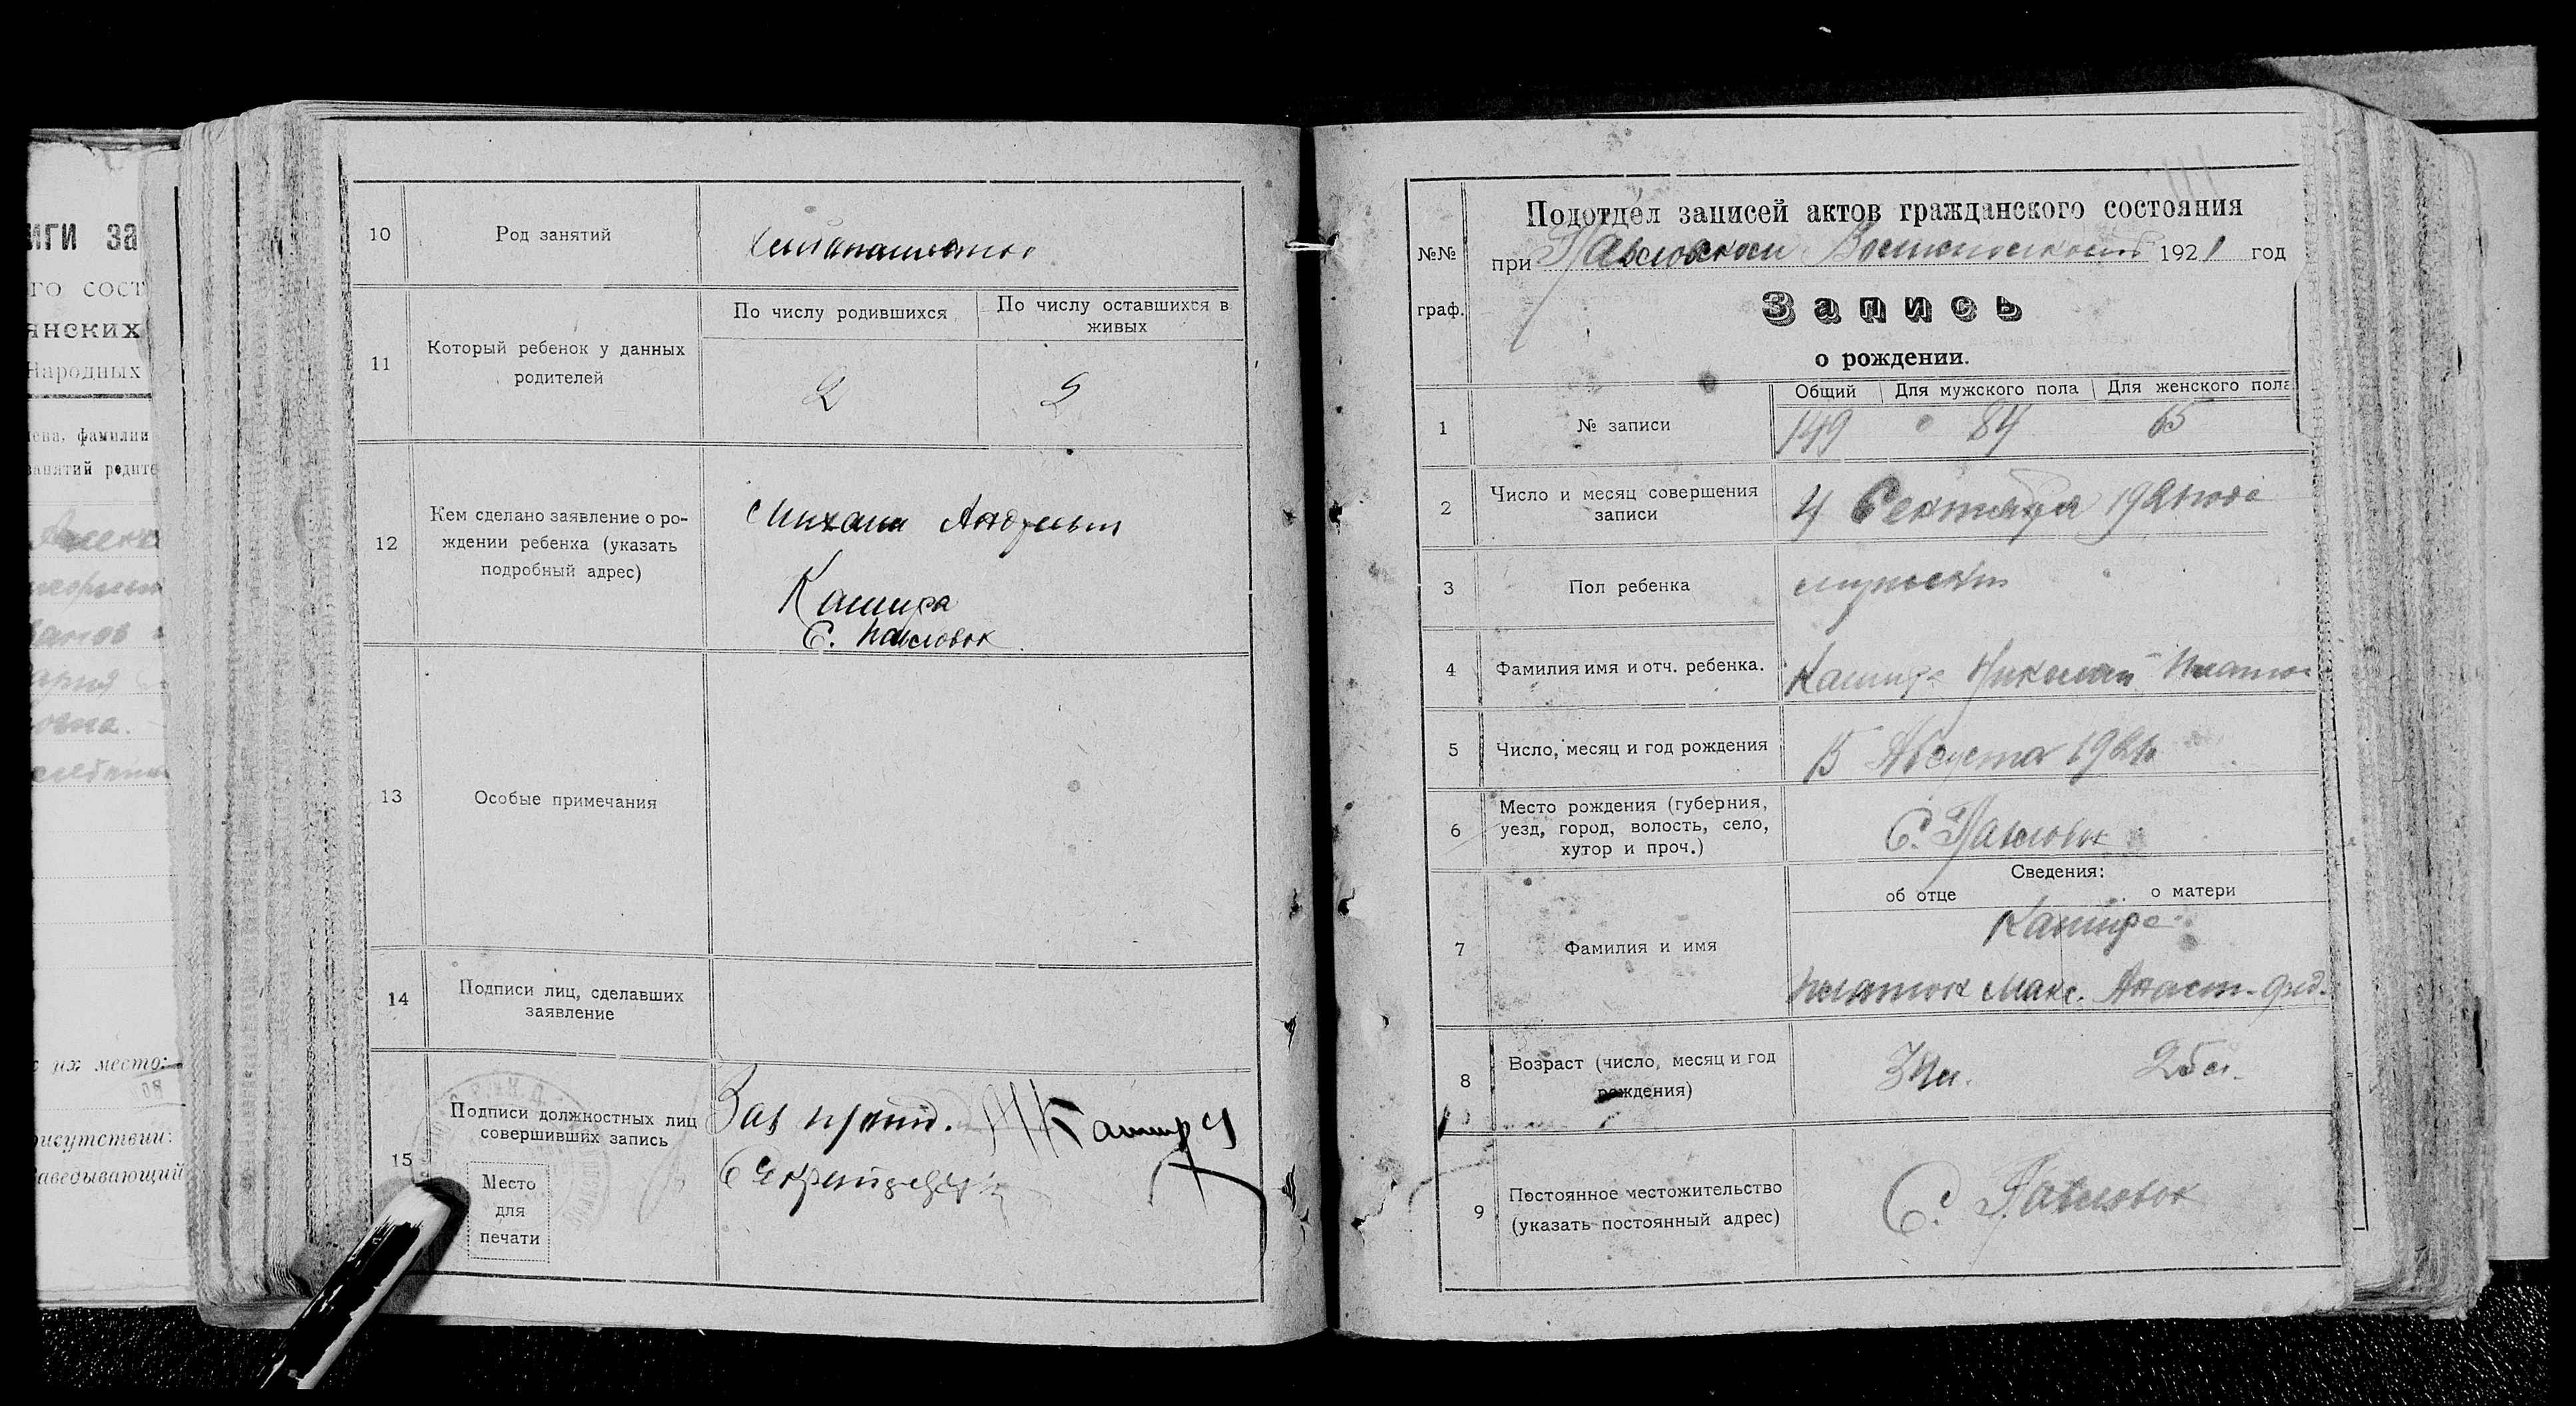 иги за
го сост
янских
Народных
ена, фамилии
занятий родите
их место:
рисутствии:
аведывающий
10 Род занятий хлебопашество
11 Который ребенок у данных родителей
По числу родившихся По числу оставшихся в живых
2 2
12 Кем сделано заявление о ро-
ждении ребенка (указать
подробный адрес)
Михаил Андреевич
Кашира
С. Павловок
13 Особые примечания
14 Подписи лиц, сделавших
заявление
15 Подписи должностных лиц
совершивших запись
Кашира
Место
для
печати
№№
граф.
Подотдел записей актов гражданского состояния
при Павловском 1921 год
Запись
о рождении.
Общий Для мужского пола Для женского пола
1 № записи 149 84 65
2 Число и месяц совершения
записи
4 Сентября 1921 года
3 Пол ребенка мужской
4 Фамилия имя и отч. ребенка. Кашира Николай Платон
5 Число, месяц и год рождения 15 Августа 1921
6 Место рождения (губерния,
уезд, город, волость, село,
хутор и проч.)
С. Павловок
Сведения:
об отце о матери
7 Фамилия и имя
Кашира
Платон Макс. Анаст. Фед.
8 Возраст (число, месяц и год
рождения)
34 л. 25 л.
9 Постоянное местожительство
(указать постоянный адрес)
С. Павловок